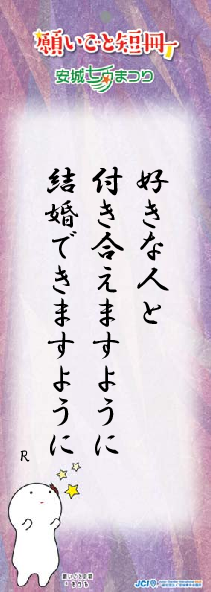 願いごと短冊
安城七夕まつり
好きな人と
付き合えますように
結婚できますように
R
JCI